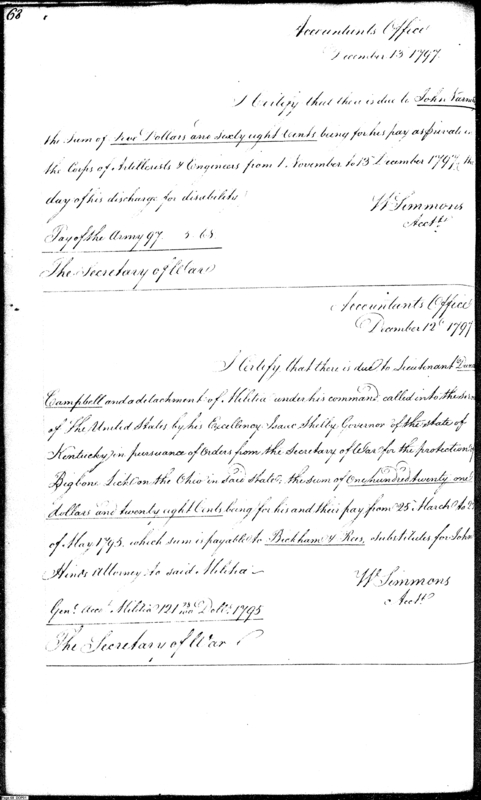 68
Accountants Office
December 13 1797
I Certify that there is due to John
the sum of five Dollars and sixty eight Cents being for his pay as private in
the Corps of Artillerists & Engineers from 1 November to 13 December 1797, the
day of his discharge for disability
Wm Simmons
Acctt
Pay of the Army 97 5 68
The Secretary of War
Accountants Office
December 12th 1797
I Certify that there is due to Lieutenant
Campbell and a detachment of Militia under his command called into the
of The United States by his Excellency Isaac Shelby Governor of the state of
Kentucky in pursuance of Orders from the Secretary of War for the protection of
Bigbone Lick on the Ohio in said State, the sum of One hundred twenty one
dollars and twenty eight Cents being for his and their pay from 25 March to
of May 1795. which sum is payable to Beckham & Rees, substitutes for John
Hinds Attorney to said Militia
Wm Simmons
Acctt
Genl. Acct Militia 121 28/100 Dolls. 1795
The Secretary of War